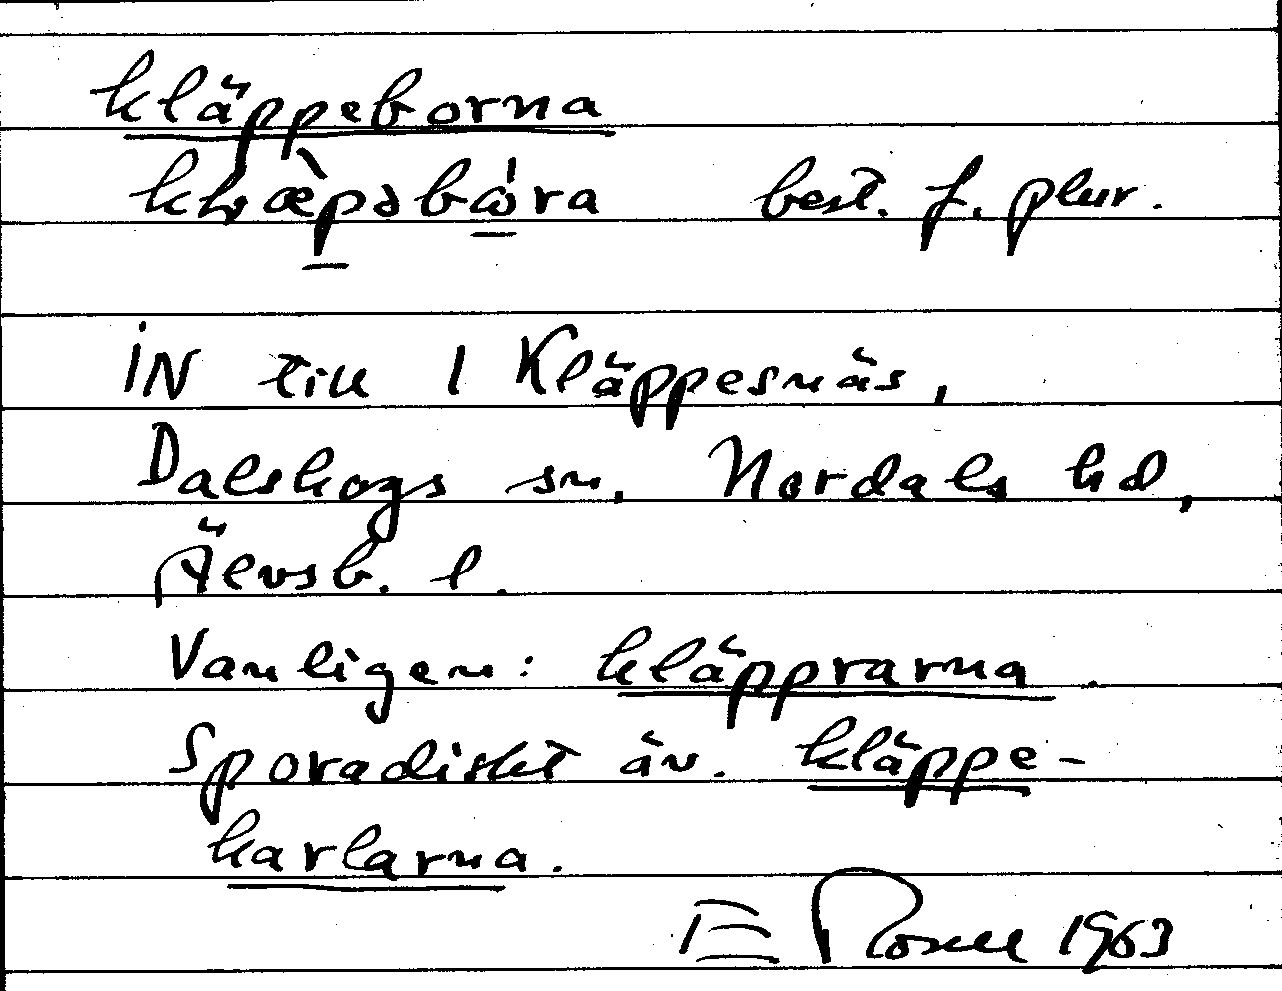 kläppeborna
best. f. plur.
IN till 1 Kläppesnäs,
Dalskogs sn, Nordals hd,
Älvsb. l.
Vanligen: kläpprarna.
Sporadiskt äv. kläppe-
karlarna.
E 1963